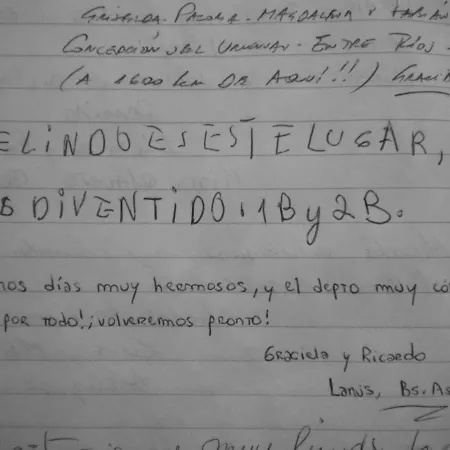 GRISELDA. PAOLA. MAGDALENA Y FABIÁN
CONCEPCIÓN DEL URUGUAY. ENTRE RÍOS.
(A 1600 Km DE AQUÍ!!!) GRACI
E LiNDO ES ESTE LUGAR,
DiVENTiDO. 1B y 2B.
mos días muy hermosos, y el depto muy có
por todo! ¡volveremos pronto!
Graciela y Ricardo
Lanús, Bs. As